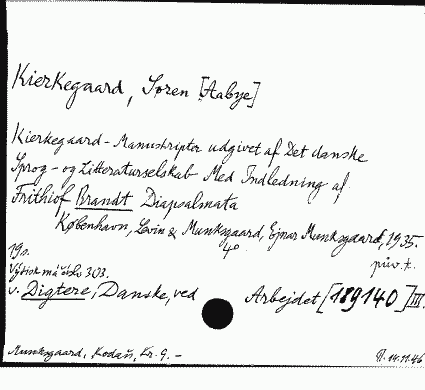 Kierkegaard, Søren [Aabye]
Kierkegaard-Manuskripter udgivet af Det danske
Sprog- og Litteraturselskab Med Indledning af
Frithiof Brandt Diapsalmata
København, Levin & Munksgaard, Ejnar Munksgaard, 1935.
4°
19 s. přív. t.
Výtisk má číslo 303.
v. Digtere, Danske, ved Arbejdet [189140] III.
Munksgaard, Kodaň, Kr. 9. – 14.11.46